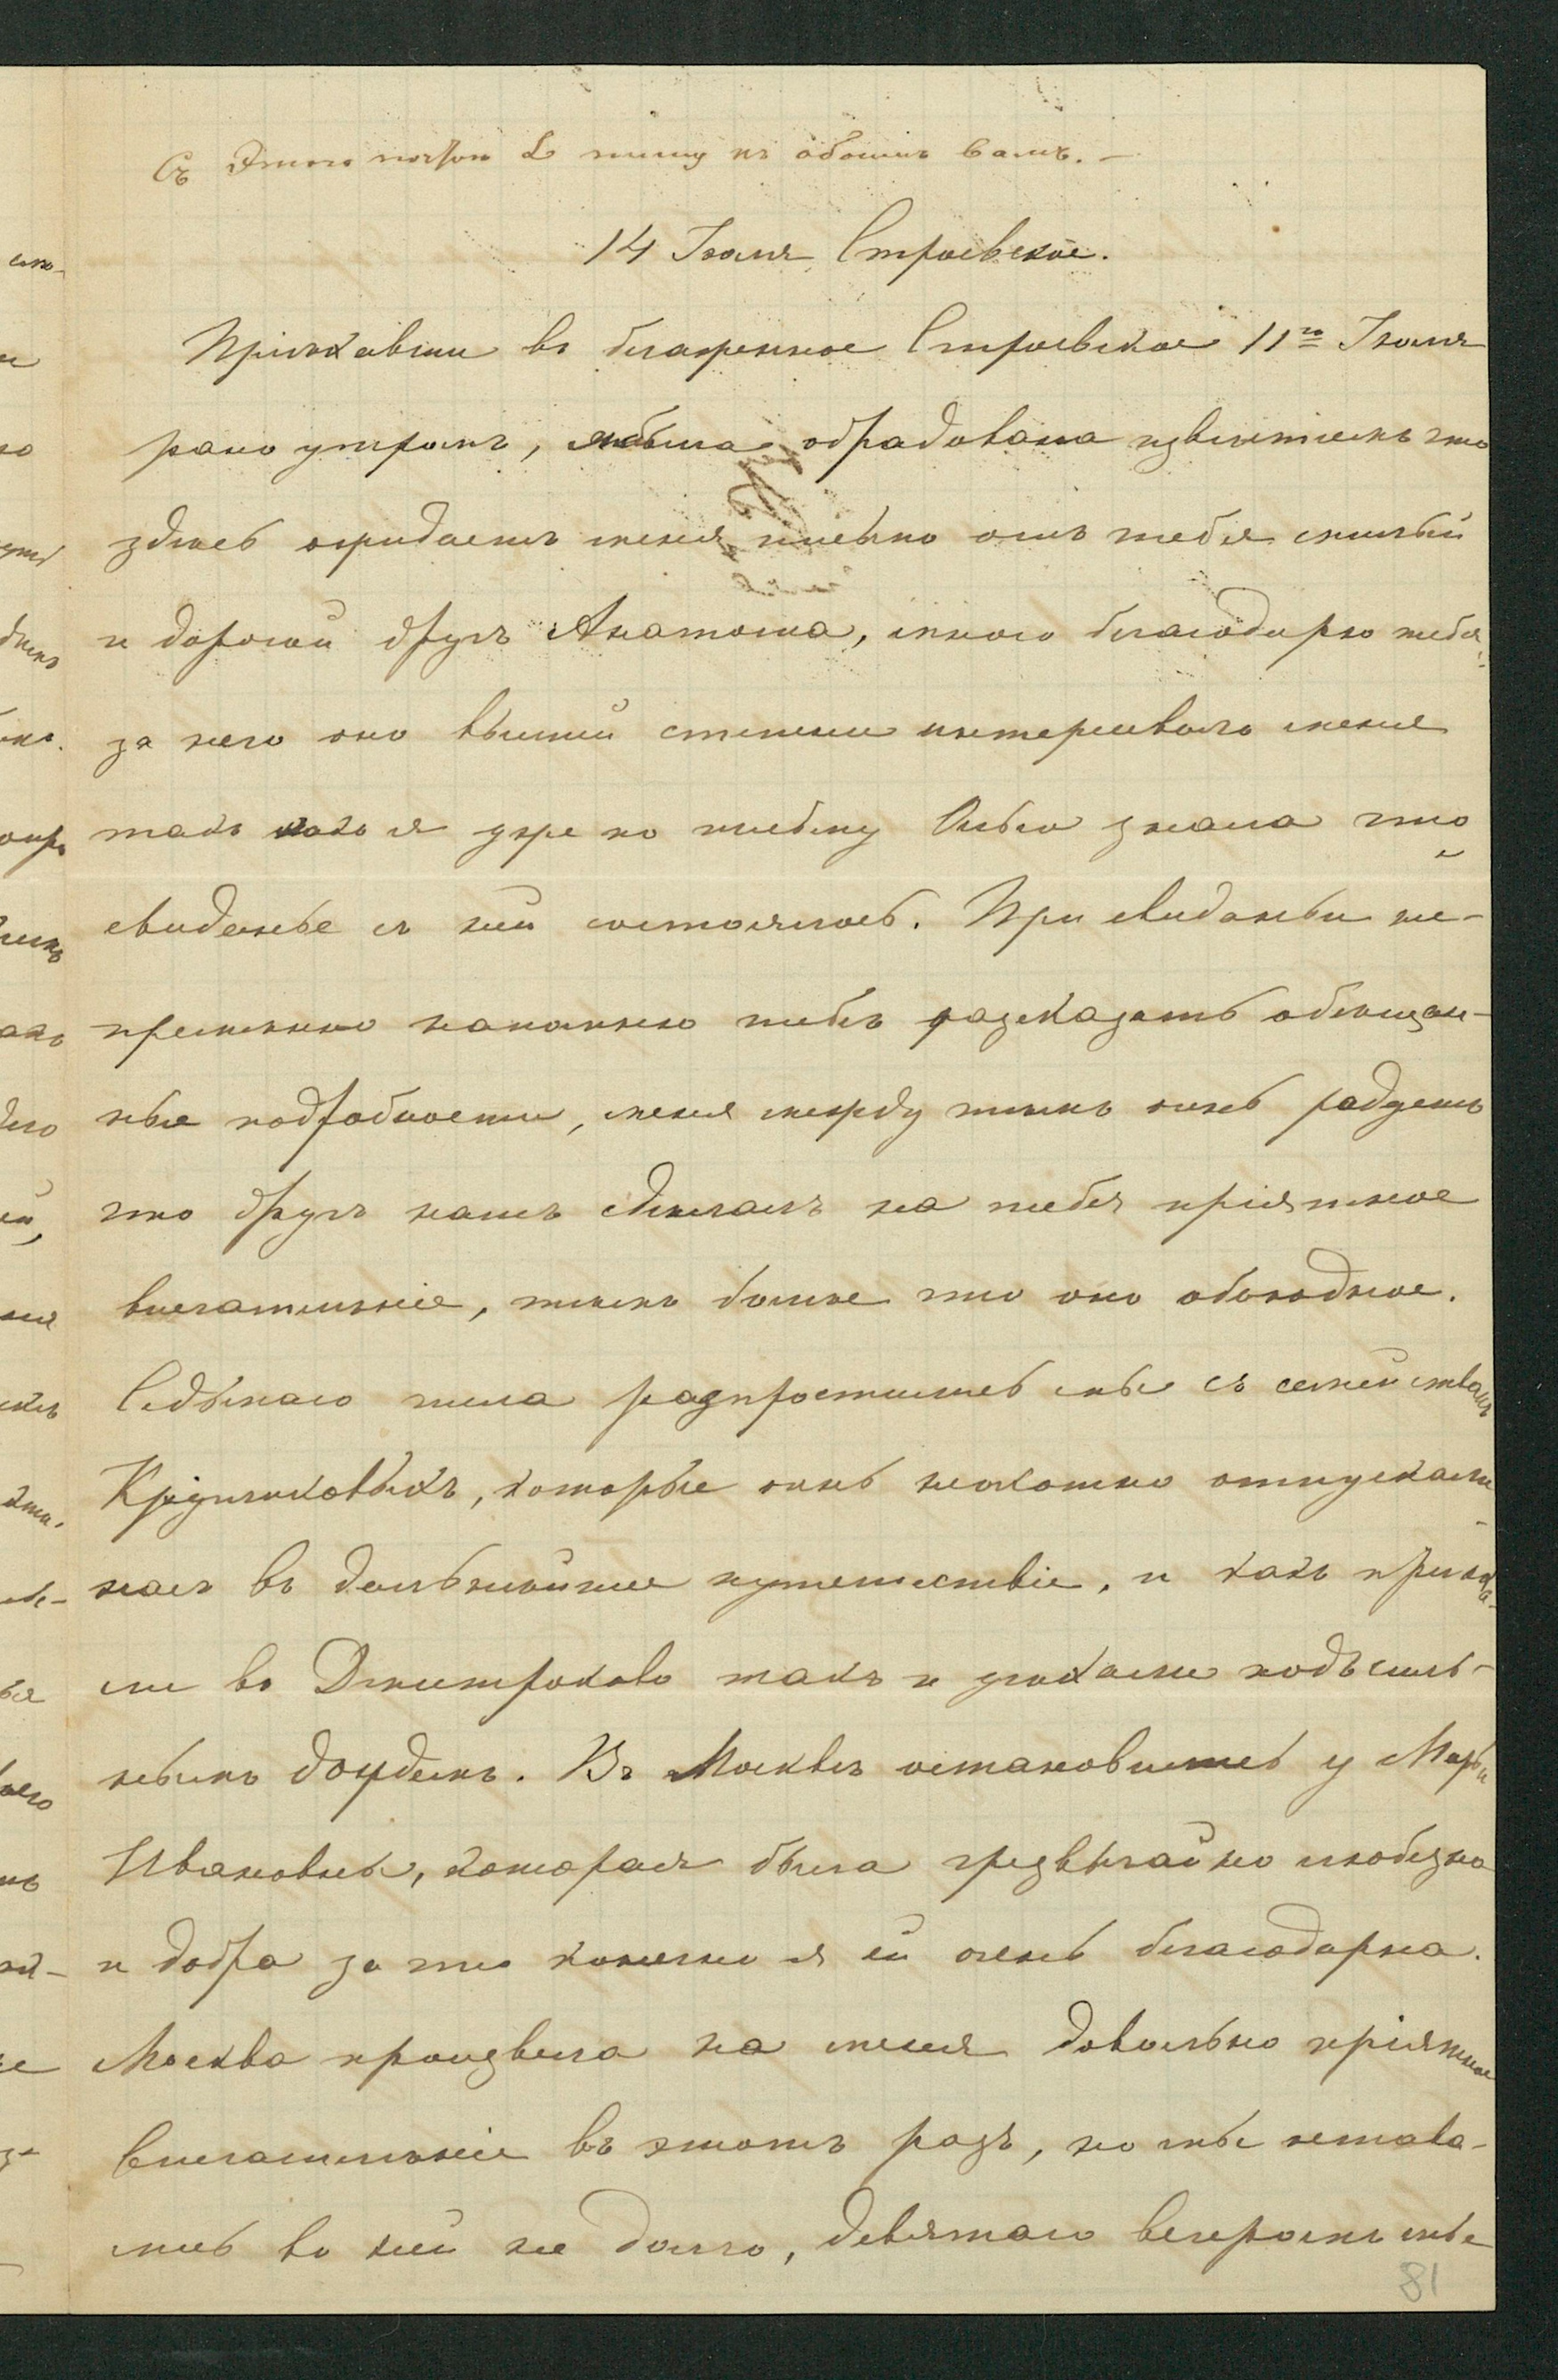 Съ этого почтою я пишу къ обоимъ вамъ. —
14 Iюля Строевское.
Пріѣхавши въ благренное Строевское 11го Iюля
рано утромъ, я была обрадована извѣстіемъ что
здѣсь ожидаетъ меня письмо отъ тебя милый
и дорогой другъ Анатоша, много благодарю тебя
за него оно высшій степени интересовало меня
такъ какъ я уже по письму Ольги знала что
свиданье съ ней состоялось. При свиданьи не-
премѣнно напомню тебѣ разсказать обѣщан-
ныя подробности, меня между тѣмъ очнь радуетъ
что другъ нашъ сдѣлалъ на тебя пріятное
впечатлѣніе, тѣмъ болѣе что оно обоюдное.
Седьмаго числа разпростились мы съ семействомъ
которые очнь неохотно отпускали
насъ въ дальнѣйшее путешествіе, и какъ пріѣха-
ли въ так и уѣхали подъ силь-
нымъ дождемъ. Въ Москвѣ остановились у Марьи
Ивановны, которая была чрезвычайно любезна
и добра за что конечно я ей очень благодарна.
Москва произвела на меня довольно пріятное
впечатлѣніе въ этотъ разъ, но мы остава-
лись въ ней не долго, девятаго вечеромъ мы
81